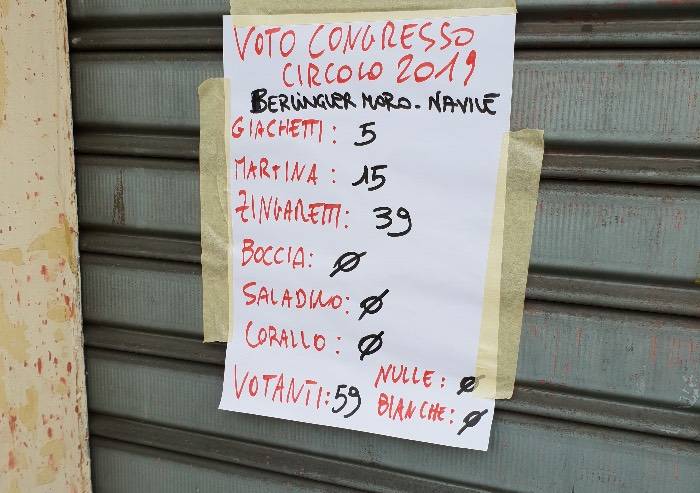 VOTO CONGRESSO
CIRCOLO 2019
BERLINGUER MORO - NAVILE
GIACHETTI: 5
MARTINA: 15
ZINGARETTI: 39
BOCCIA: Ø
SALADINO: Ø
CORALLO: Ø
NULLE: Ø
VOTANTI: 59
BIANCHE: Ø